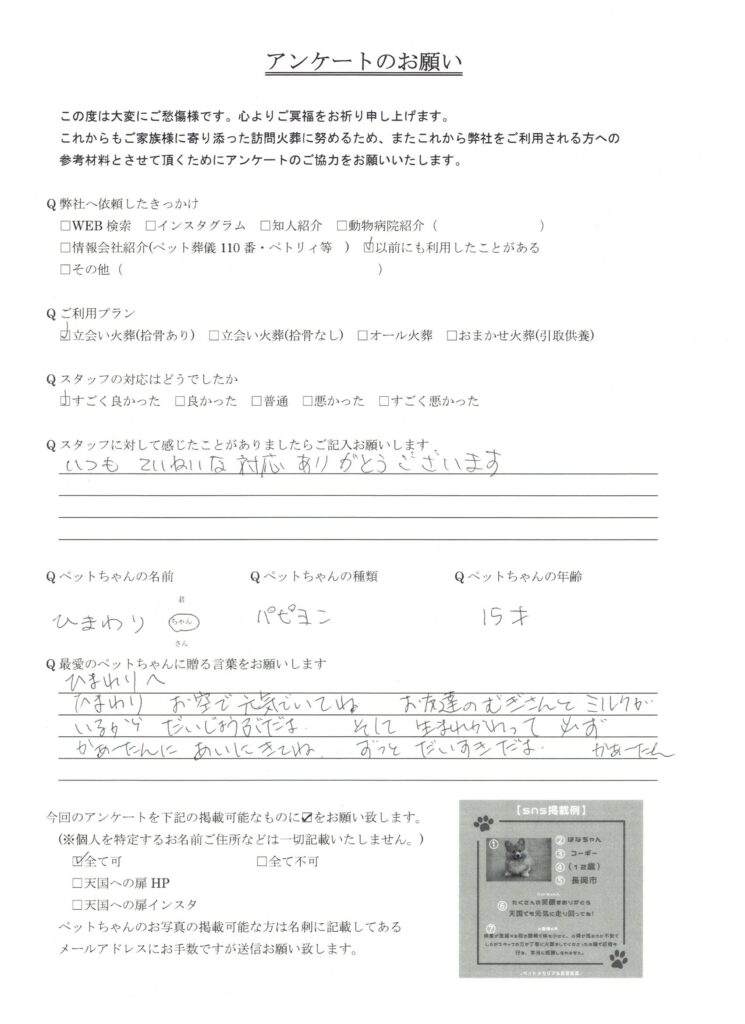 アンケートのお願い
この度は大変にご愁傷様です。心よりご冥福をお祈り申し上げます。
これからもご家族様に寄り添った訪問火葬に努めるため、またこれから弊社をご利用される方への
参考材料とさせて頂くためにアンケートのご協力をお願いいたします。
Q 弊社へ依頼したきっかけ
□WEB 検索 □インスタグラム □知人紹介 □動物病院紹介（ ）
□情報会社紹介(ペット葬儀 110 番・ペトリィ等 ) ☑以前にも利用したことがある
□その他（ ）
Q ご利用プラン
☑立会い火葬(拾骨あり) □立会い火葬(拾骨なし) □オール火葬 □おまかせ火葬(引取供養)
Q スタッフの対応はどうでしたか
☑すごく良かった □良かった □普通 □悪かった □すごく悪かった
Q スタッフに対して感じたことがありましたらご記入お願いします
いつも ていねいな 対応 ありがとうございます
Q ペットちゃんの名前 Q ペットちゃんの種類 Q ペットちゃんの年齢
君
ひまわり ちゃん パピヨン 15才
さん
Q 最愛のペットちゃんに贈る言葉をお願いします
ひまわりへ
ひまわり お空で元気でいてね お友達のむぎさんと ミルクが
いるから だいじょうぶだよ そして 生まれかわって 必ず
かあーたんに あいにきてね ずっと だいすきだよ かあーたん
今回のアンケートを下記の掲載可能なものに☑をお願い致します。
(※個人を特定するお名前ご住所などは一切記載いたしません。)
☑全て可 □全て不可
□天国への扉 HP
□天国への扉インスタ
ペットちゃんのお写真の掲載可能な方は名刺に記載してある
メールアドレスにお手数ですが送信お願い致します。
【sns掲載例】
① ② はなちゃん
③ コーギー
④ (12歳)
⑤ 長岡市
⑥ たくさんの笑顔をありがとう
天国でも元気に走り回ってね!
⑦